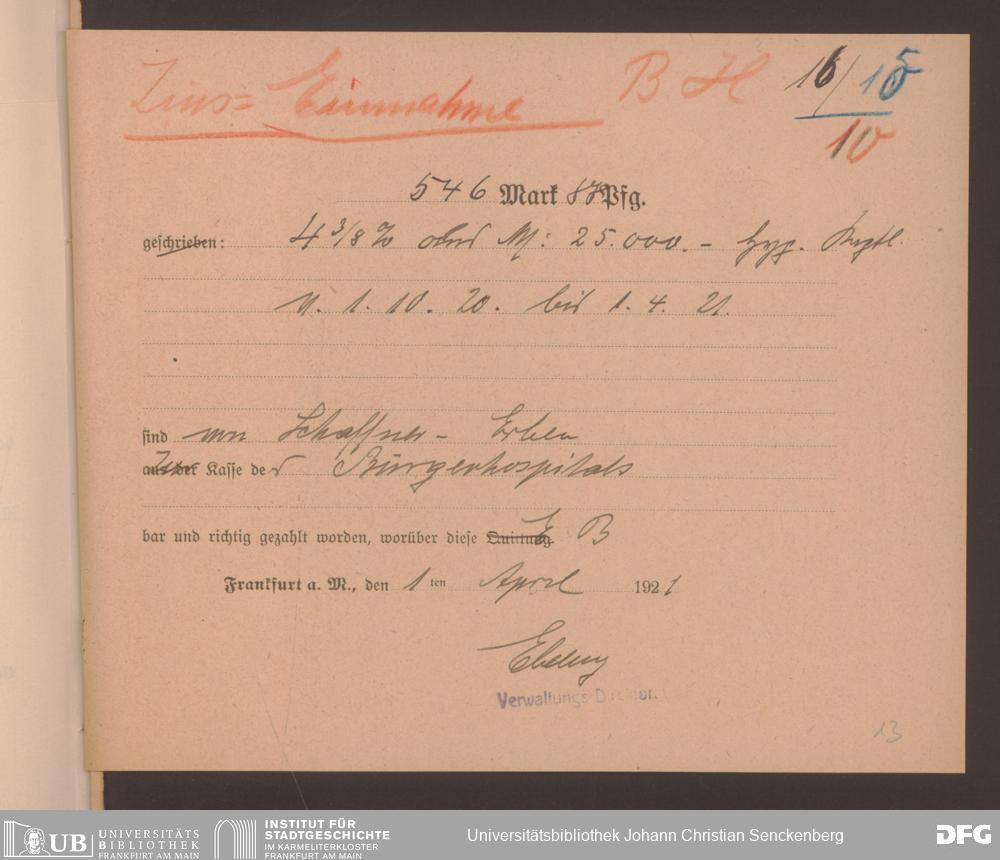 Zins= Einnahme B H 16/15
10
546 Mark 87 Pfg.
geschrieben: 4 3/8 % M: 25.000. - Hyp.
v. 1. 10. 20. bis 1. 4. 21.
sind von Schaffner- Erben
Kasse des Bürgerhospitals
bar und richtig gezahlt worden, worüber diese Quittung E B
Frankfurt a. M., den 1 ten April 1921
Verwaltungs-Direktor.
13
UB UNIVERSITÄTS BIBLIOTHEK FRANKFURT AM MAIN
INSTITUT FÜR STADTGESCHICHTE IM KARMELITERKLOSTER FRANKFURT AM MAIN
Universitätsbibliothek Johann Christian Senckenberg
DFG